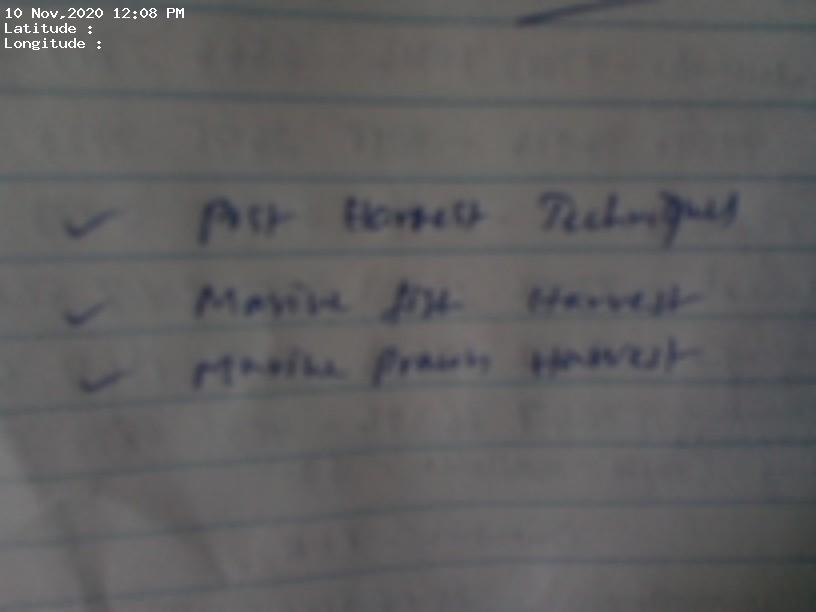 10 Nov,2020 12:08 PM
Latitude :
Longitude :
✓ Post Harvest Techniques
✓ Marine fish Harvest
✓ Marine Prawn Harvest